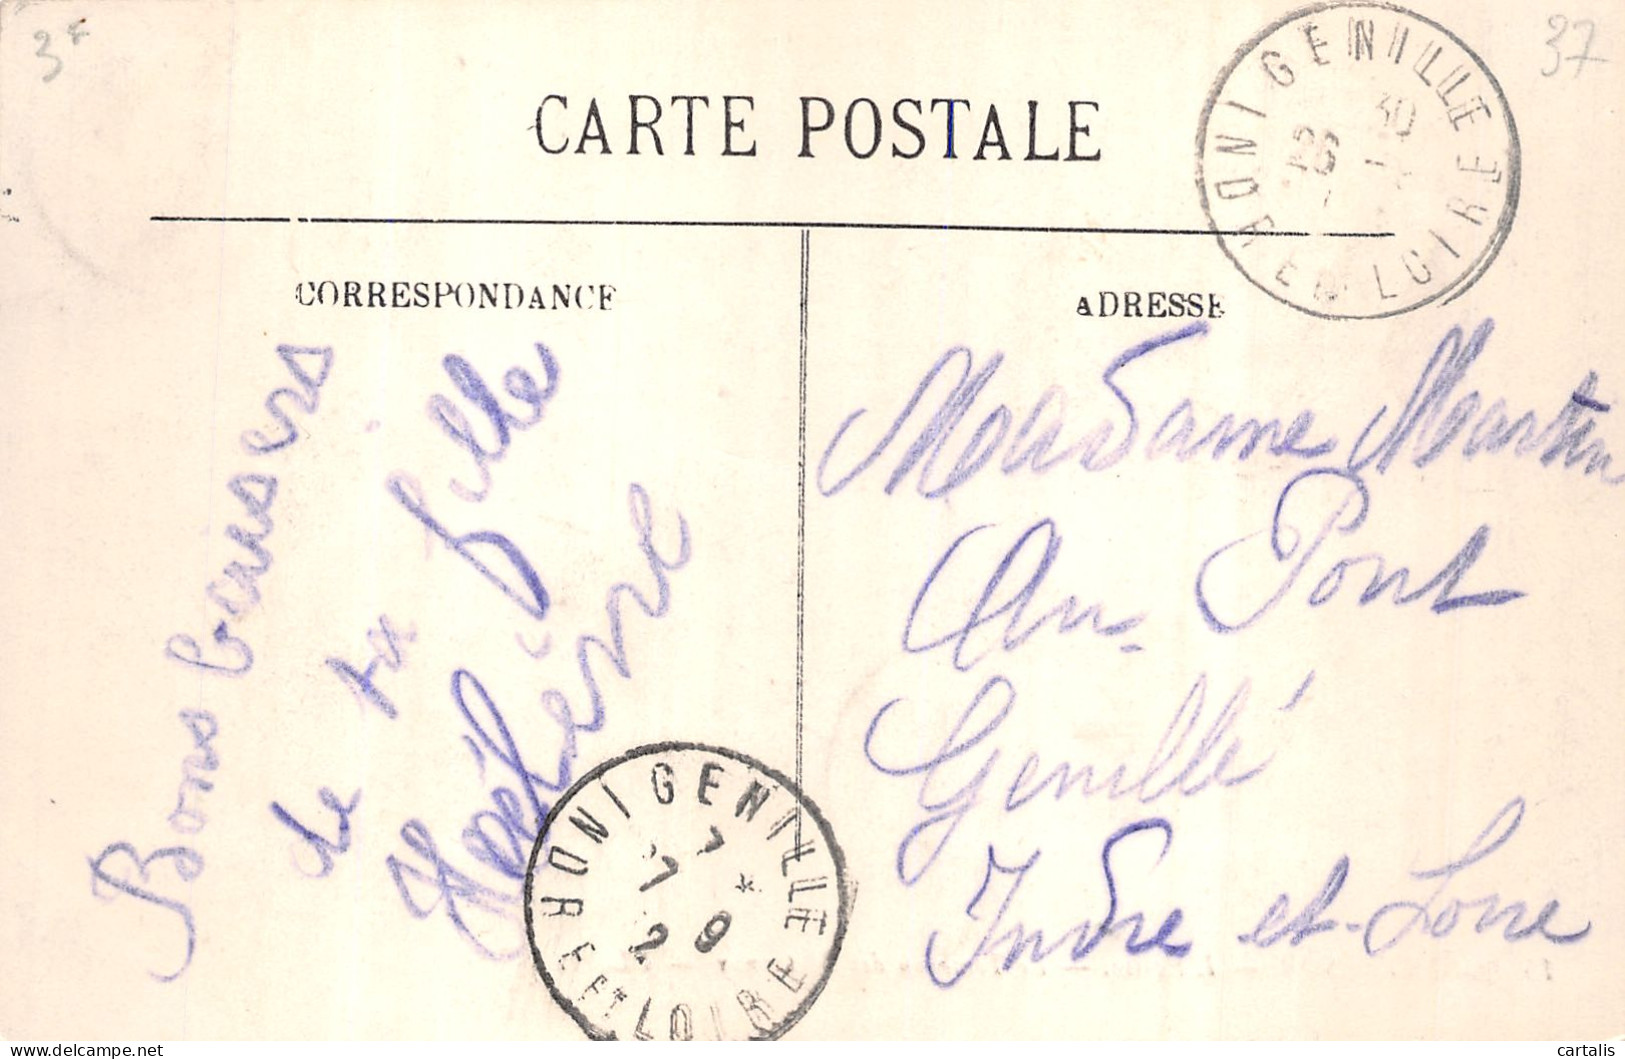 3€
37
CARTE POSTALE
GENILLÉ
INDRE ET LOIRE
30
26
CORRESPONDANCE
ADRESSE
Bons baisers
de ta fille
Hélène
Madame Martin
Au Pont
Genillé
Indre et Loire
GENILLÉ
INDRE ET LOIRE
7 7 *
2 9
cartalis
www.delcampe.net